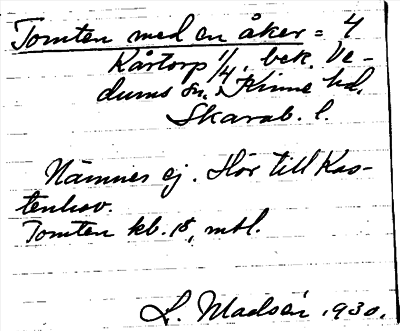 Tomten med en åker = 4
Kårtorp 1/4, bek. Ve-
dums sn. Kinne hd.
Skarab. l.
Nämnes ej. Hör till Kas-
tenhov.
Tomten kb. 18, mtl.
L. Madsén 1930.